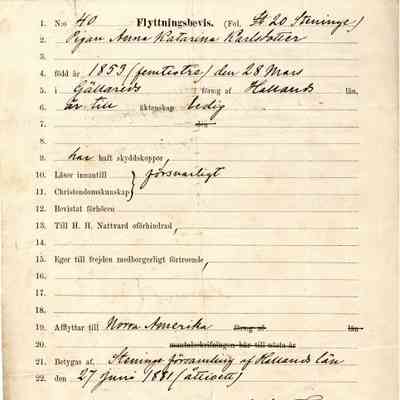 1. N:o 40 Flyttningsbevis. (Fol. St 20 Steninge)
2. Pigan Anna Katarina Karlsdotter
3.
4. född år 1853 (femtiotre) den 28 Mars
5. i Gällareds förs:g af Hallands län,
6. är till äktenskap ledig
7. den
8.
9. har haft skyddskoppor,
10. Läser innantill } försvarligt
11. Christendomskunskap
12. Bevistat förhören
13. Till H. H. Nattvard oförhindrad,
14.
15. Eger till frejden medborgerligt förtroende,
16.
17.
18.
19. Afflyttar till Norra Amerika förs:g af län
20. mantalsskrifningen här till nästa år
21. Betygas af. Steninge församling af Hallands län
22. den 27 Juni 1881 (åttioett)